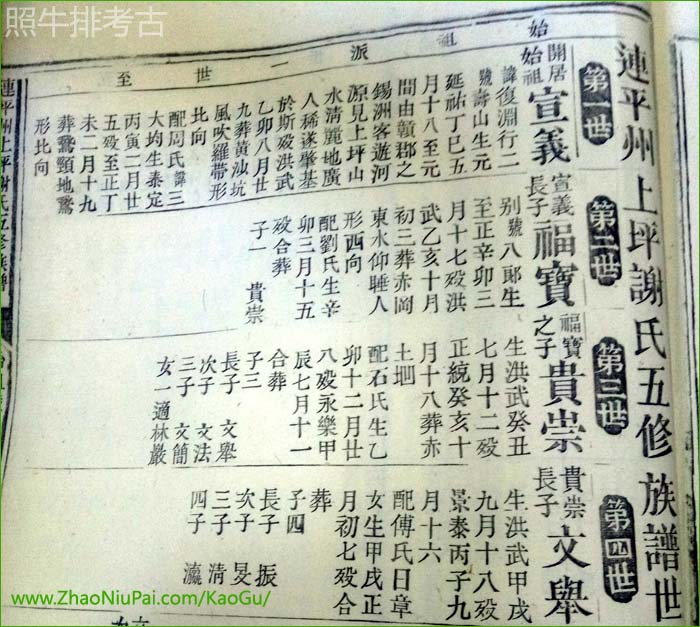 照牛排考古
連平州上坪謝氏五修族譜世
始祖派一世至
第一世
開居
始祖
宣義
諱復淵行二
號壽山生元
延祐丁巳五
月十八至元
間由贛郡之
錫洲客遊河
源見上坪山
水清麗地廣
人稀遂肇基
於斯殁洪武
乙卯八月廿
九葬黃汕坑
風吹羅帶形
比向
配周氏諱三
大均生泰定
丙寅二月廿
五殁至正丁
未二月十九
葬鵞頸地鵞
形比向
第二世
宣義
長子
福寶
别號八郎生
至正辛卯三
月十七殁洪
武乙亥十月
初三葬赤岡
東水仰睡人
形西向
配劉氏生辛
卯三月十五
殁合葬
子一 貴崇
第三世
福寶
之子
貴崇
生洪武癸丑
七月十二殁
正統癸亥十
月十八葬赤
土垇
配石氏生乙
卯十二月廿
八殁永樂甲
辰七月十一
合葬
子三
長子 文舉
次子 文法
三子 文簡
女一適林嚴
第四世
貴崇
長子
文舉
生洪武甲戌
九月十八殁
景泰丙子九
月十六
配傅氏日章
女生甲戌正
月初七殁合
葬
子四
長子 振
次子 旻
三子 清
四子 瀛
連平州上坪謝氏五修族譜
www.ZhaoNiuPai.com/KaoGu/